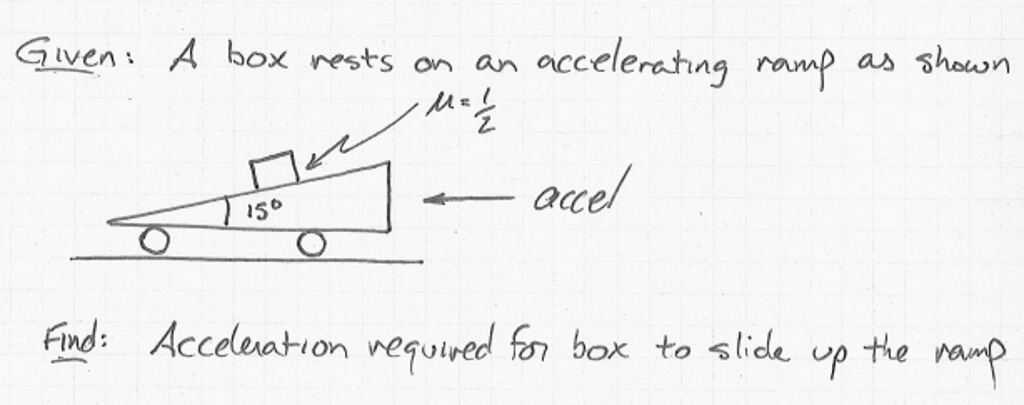 Given: A box rests on an accelerating ramp as shown
μ = 1/2
15°
accel
Find: Acceleration required for box to slide up the ramp